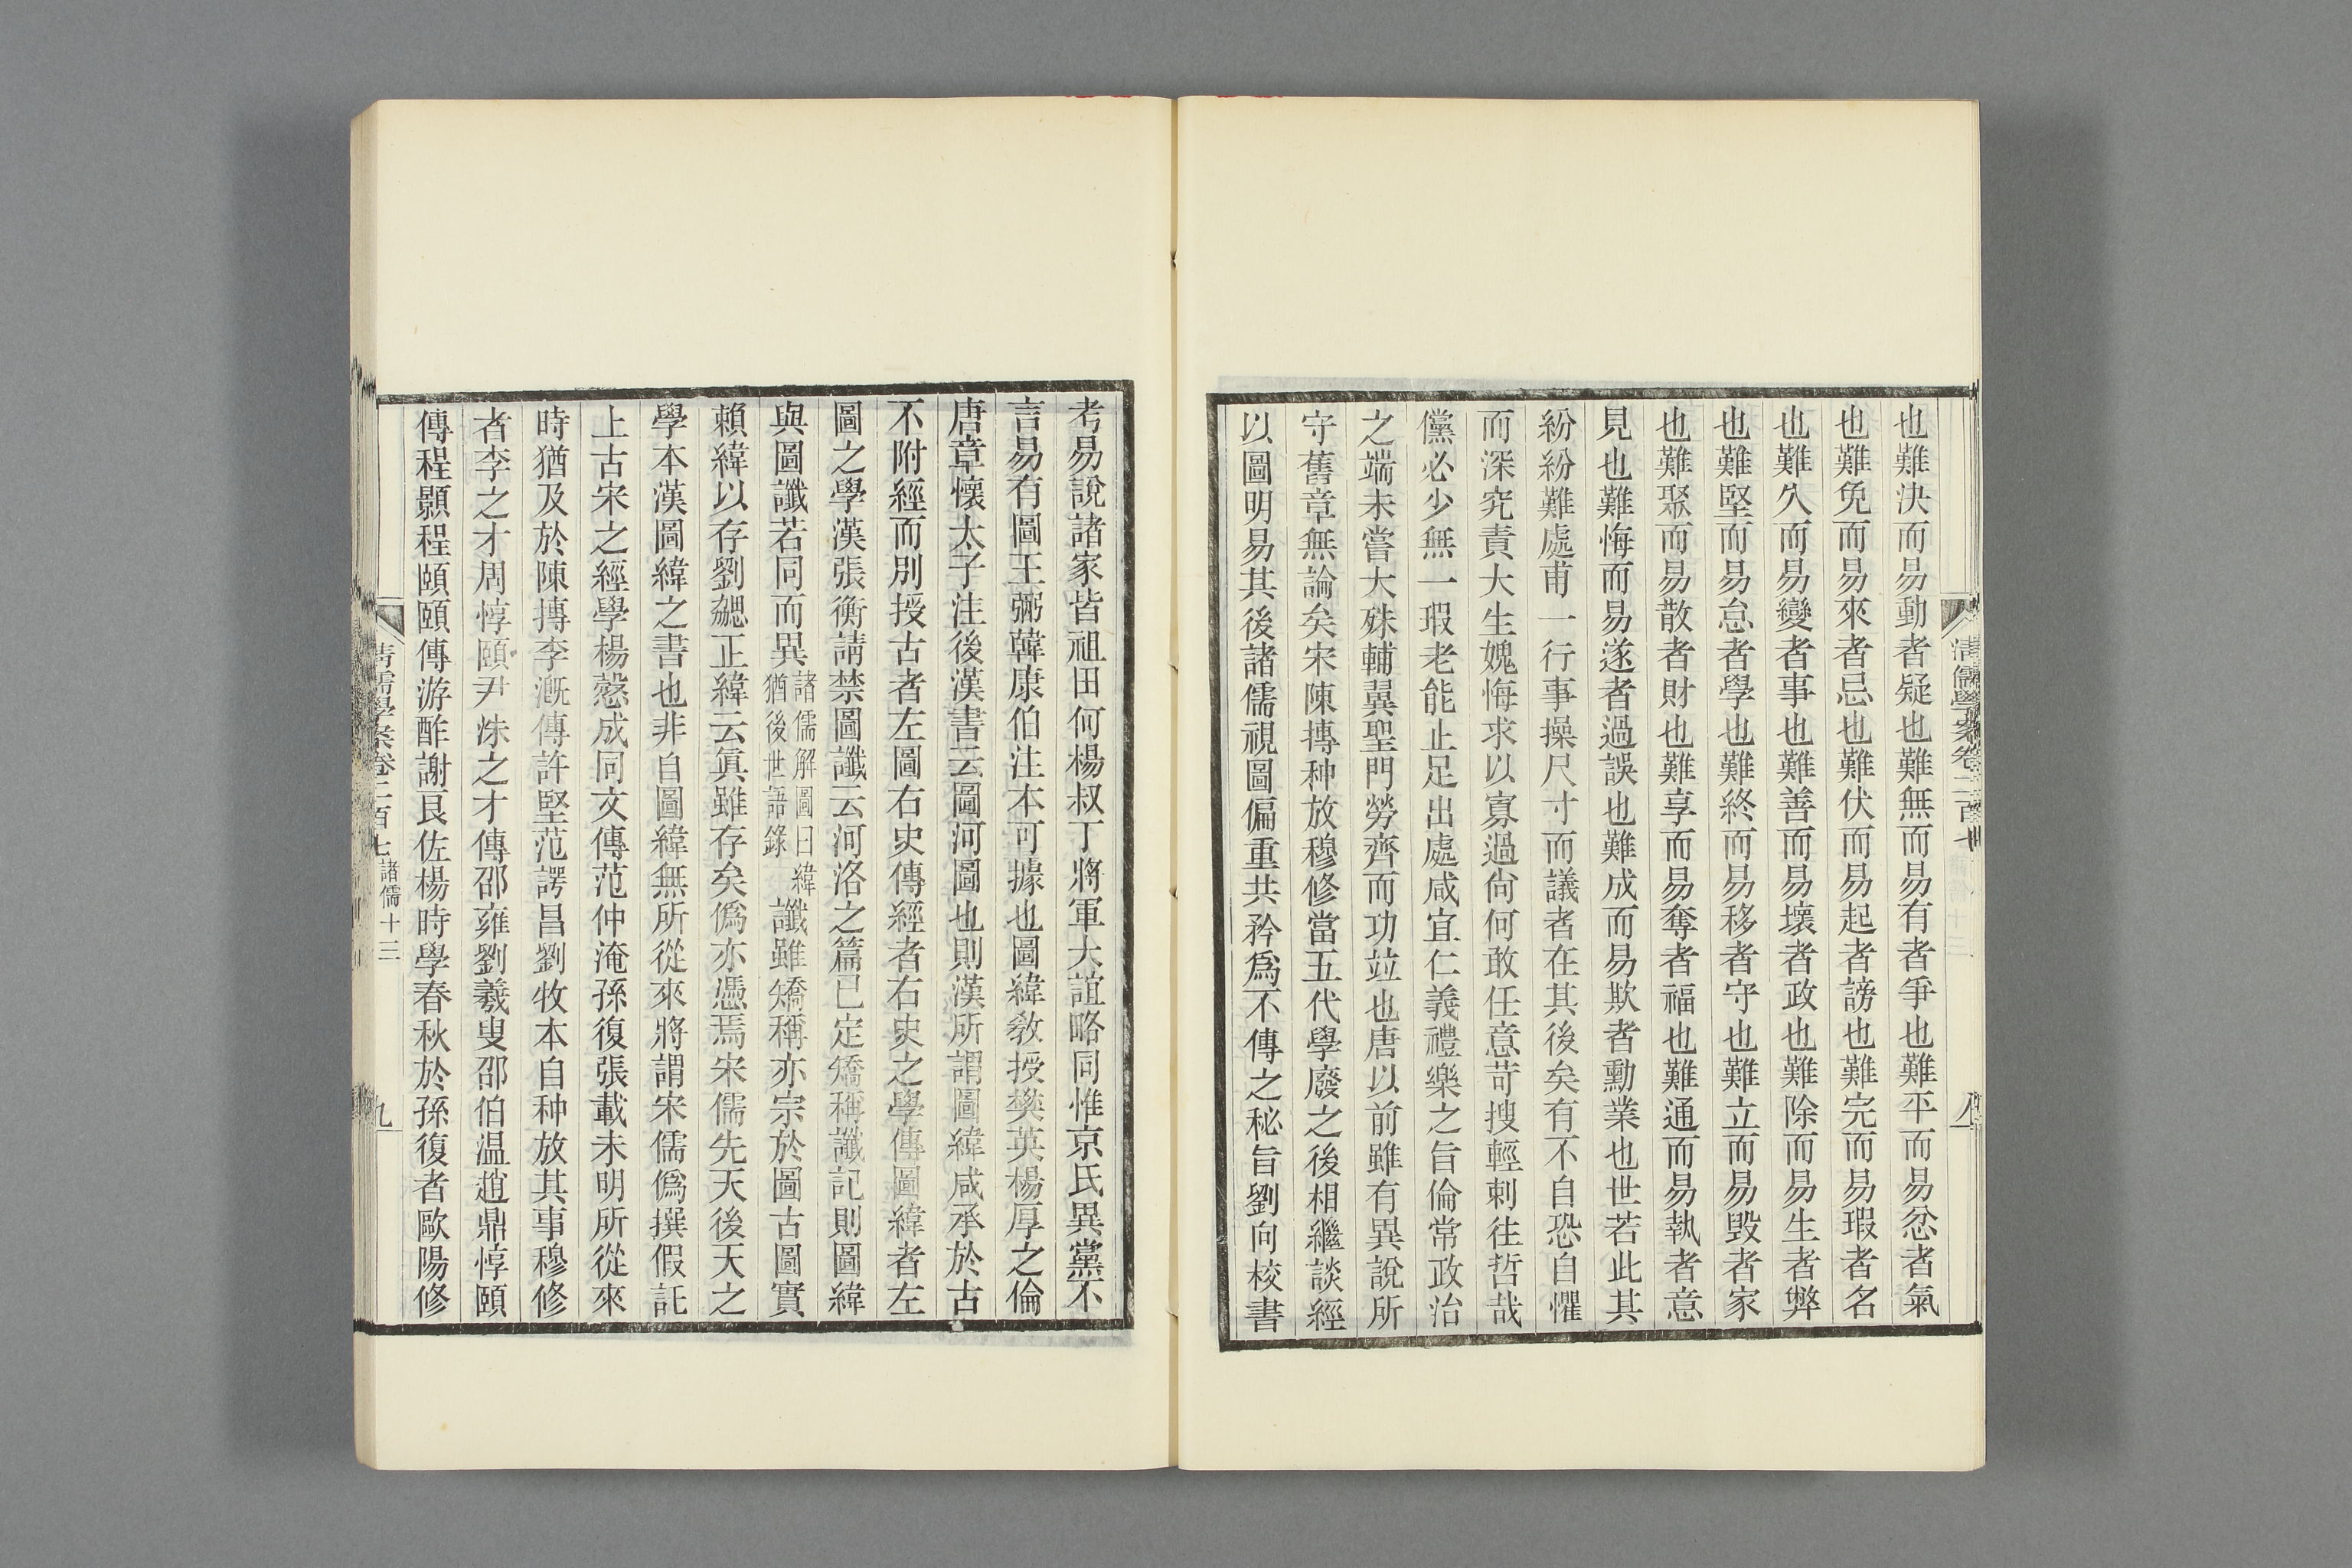 清儒學案卷二百七
八
也難決而易動者疑也難無而易有者爭也難平而易忿者氣
也難免而易來者忌也難伏而易起者謗也難完而易瑕者名
也難久而易變者事也難善而易壞者政也難除而易生者弊
也難堅而易怠者學也難終而易移者守也難立而易毀者家
也難聚而易散者財也難享而易奪者福也難通而易執者意
見也難悔而易遂者過誤也難成而易欺者勳業也世若此其
紛紛難處甫一行事操尺寸而議者在其後矣有不自恐自懼
而深究責大生媿悔求以寡過尙何敢任意苛搜輕刺往哲哉
儻必少無一瑕老能止足出處咸宜仁義禮樂之旨倫常政治
之端未嘗大殊輔翼聖門勞齊而功竝也唐以前雖有異說所
守舊章無論矣宋陳摶种放穆修當五代學廢之後相繼談經
以圖明易其後諸儒視圖偏重共矜爲不傳之秘旨劉向校書
考易說諸家皆祖田何楊叔丁將軍大誼略同惟京氏異黨不
言易有圖王弼韓康伯注本可據也圖緯敎授樊英楊厚之倫
唐章懷太子注後漢書云圖河圖也則漢所謂圖緯咸承於古
不附經而別授古者左圖右史傳經者右史之學傳圖緯者左
圖之學漢張衡請禁圖讖云河洛之篇已定矯稱讖記則圖緯
與圖讖若同而異諸儒解圖曰緯猶後世語錄讖雖矯稱亦宗於圖古圖實
賴緯以存劉勰正緯云眞雖存矣僞亦憑焉宋儒先天後天之
學本漢圖緯之書也非自圖緯無所從來將謂宋儒僞撰假託
上古宋之經學楊愨成同文傳范仲淹孫復張載未明所從來
時猶及於陳摶李漑傳許堅范諤昌劉牧本自种放其事穆修
者李之才周惇頤尹洙之才傳邵雍劉羲叟邵伯温趙鼎惇頤
傳程顥程頤頤傳游酢謝良佐楊時學春秋於孫復者歐陽修
清儒學案卷二百七 諸儒十三
九